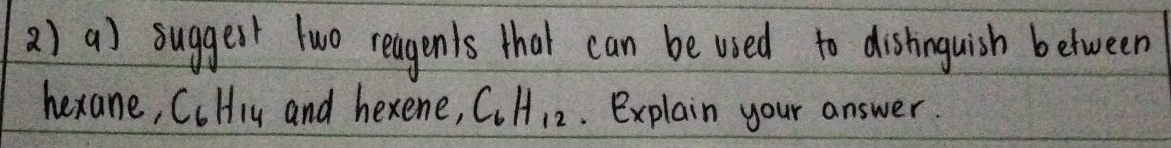 2) a) suggest two reagents that can be used to distinguish between
hexane, C₆H₁₄ and hexene, C₆H₁₂. Explain your answer.